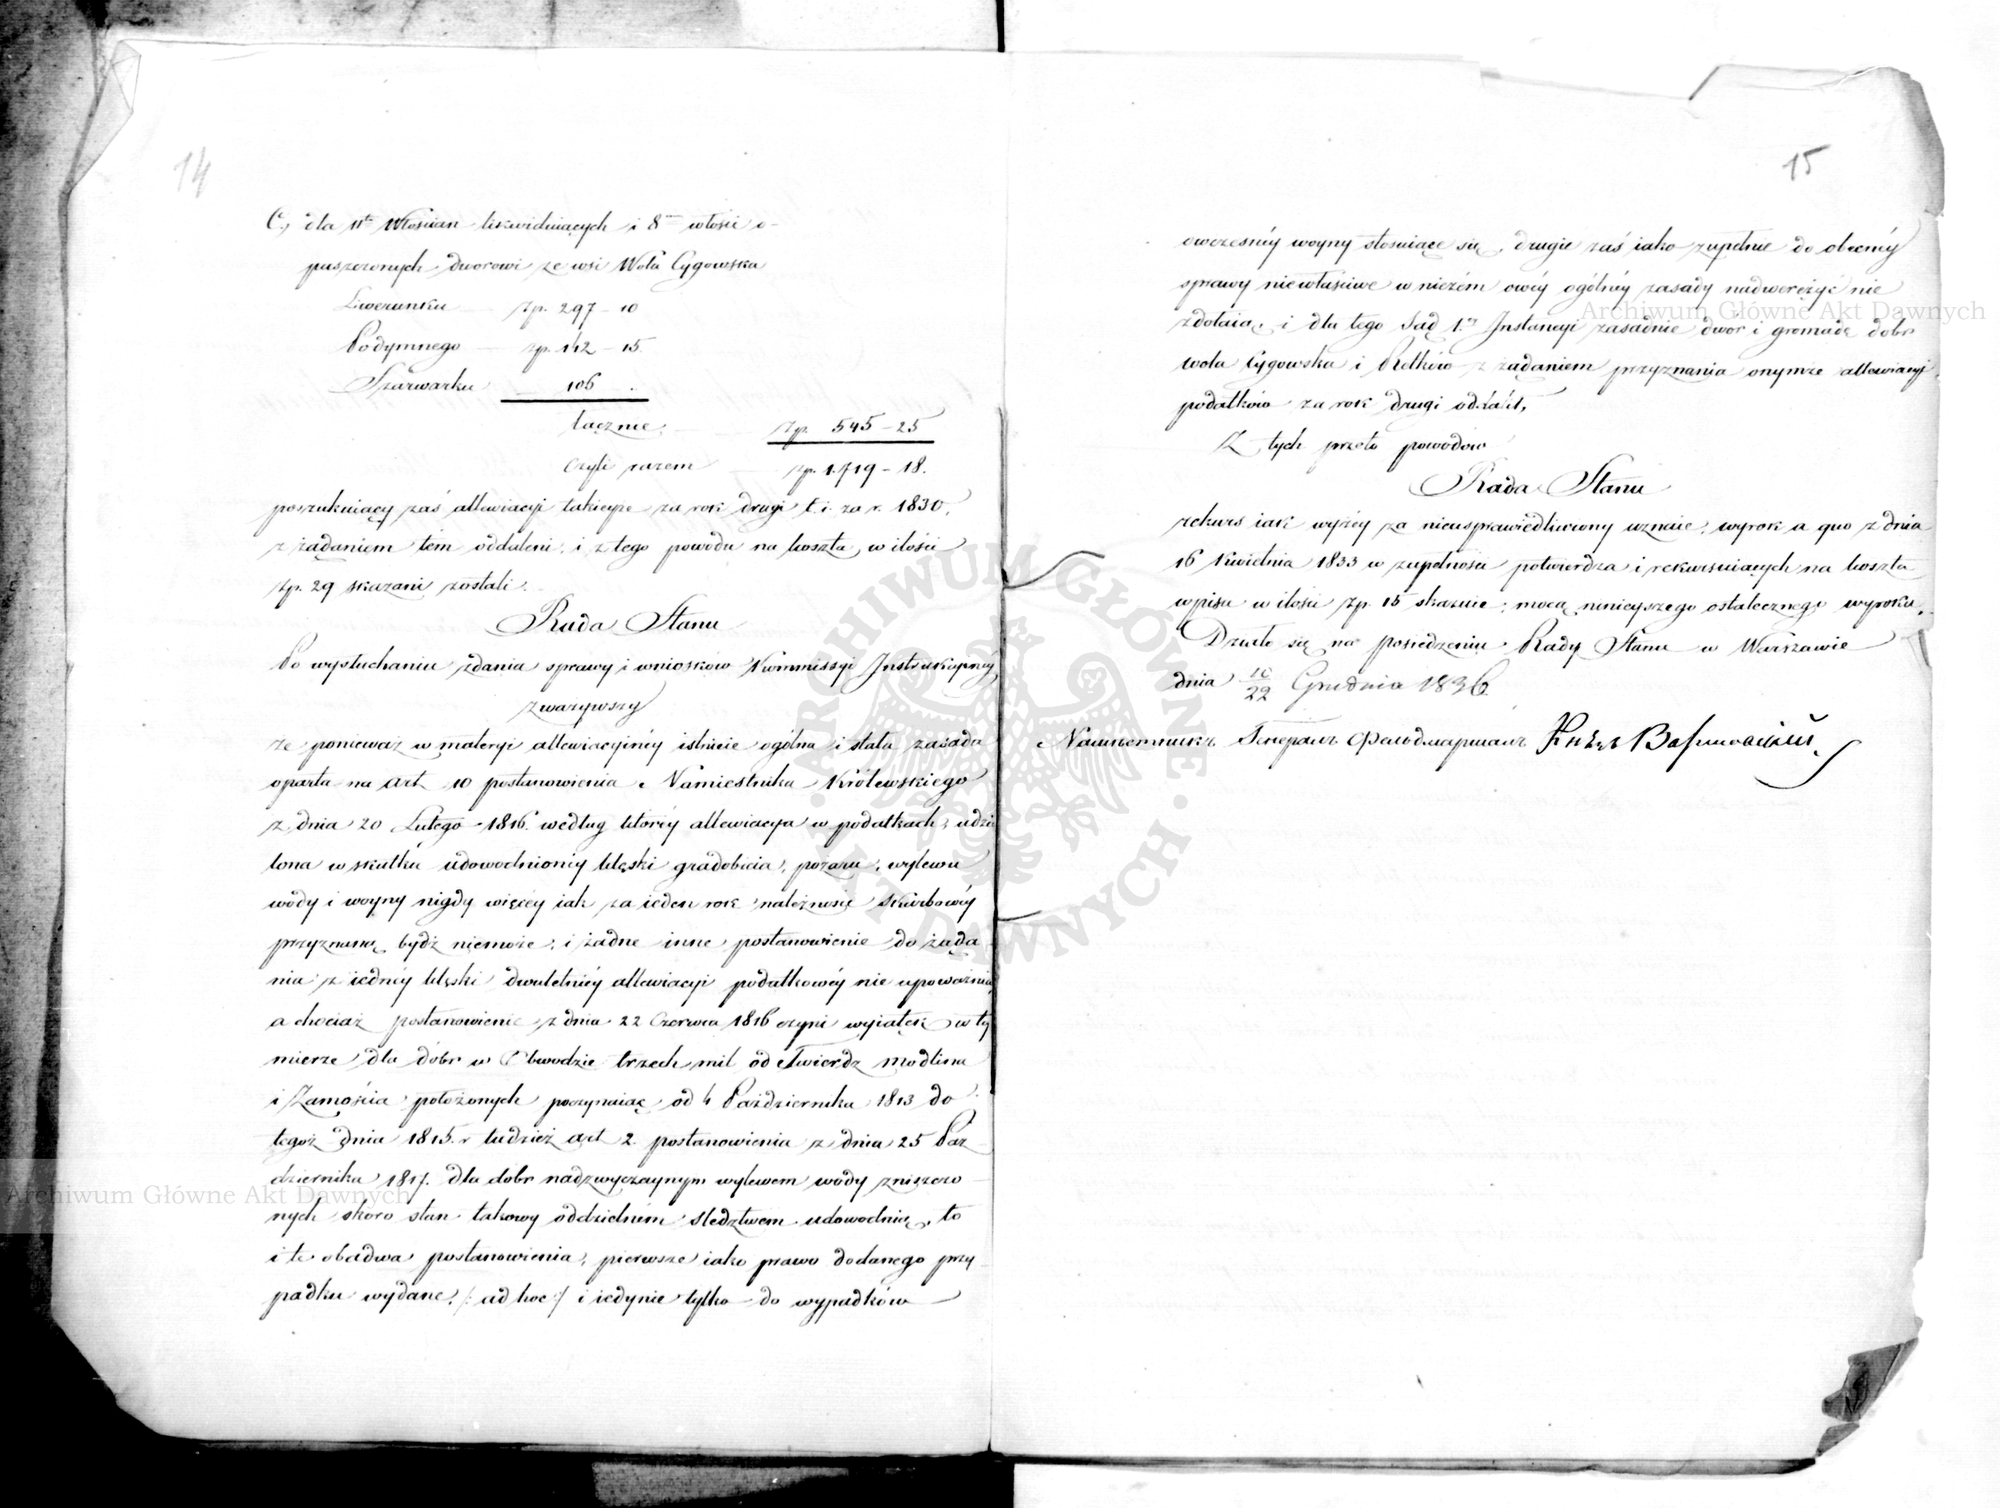 14
C., dla 11tu Włościan likwiduiących i 8miu włości o-
puszczonych dworowi ze wsi Wola Cygowska
Liwerunku zp. 297 - 10
Podymnego zp. 142 - 15.
Szarwarku 106 .
łącznie, zp. 545 - 25
czyli razem zp. 1.719 - 18.
poszukuiący zaś allewiacyi takieyże za rok drugi t. i. za r. 1830.
z żądaniem tem oddaleni, i z tego powodu na koszta w ilości
zp. 29 skazani zostali.
Rada Stanu
Po wysłuchaniu zdania sprawy i wniosków Kommissyi Instrukcyiney
zważywszy
że ponieważ w materyi allewiacyinéy istnieie ogólna i stała zasada
oparta na art. 10 postanowienia Namiestnika Królewskiego
z dnia 20 Lutego 1816. według któréy allewiacya w podatkach, udzie
lona w skutku udowodnionéy klęski gradobicia, pożaru, wylewu
wody i woyny nigdy więcéy iak za ieden rok należności Skarbowéy
przyznaną bydź niemoże, i żadne inne postanowienie do żąda
nia z iednéy klęski dwuletniéy allewiacyi podatkowéy nie upoważnia
a chociaż postanowienie z dnia 22 Czerwca 1816 czyni wyiątek w téy
mierze dla dóbr w Obwodzie trzech mil od Twierdz Modlina
i Zamościa położonych poczynaiąc od 1 Października 1813 do
tegoż dnia 1815. r tudzież art 2. postanowienia z dnia 25 Paź
dziernika 1817. dla dóbr nadzwyczaynym wylewem wody zniszczo
nych skoro stan takowy oddzielném śledztwem udowodnią, to
i te obadwa postanowienia, pierwsze iako prawo do danego przy
padku wydane, /: ad hoc :/ i iedynie tylko do wypadków
15
owczesnéy woyny stosuiące się, drugie zaś iako zupełnie do obecnéy
sprawy niewłaściwe w niczém owéy ogólnéy zasady nadwerężyć nie
zdołaią, i dla tego Sąd 1éy Instancyi zasadnie dwor i gromadę dobr
Wola Cygowska i Retków z żądaniem przyznania onymże allewiacyi
podatków za rok drugi oddalił,
Z tych przeto powodów
Rada Stanu
rekurs iak wyżéy za nieusprawiedliwiony uznaie, wyrok a quo z dnia
16 Kwietnia 1833 w zupełności potwierdza i rekuruiących na koszta
wpisu w ilości zp. 15 skazuie; mocą ninieyszego ostatecznego wyroku.
Działo się na Posiedzeniu Rady Stanu w Warszawie
dnia 10/22 Grudnia 1836.
Намѣстникъ Генералъ Фельдмаршалъ Князь Варшавскій